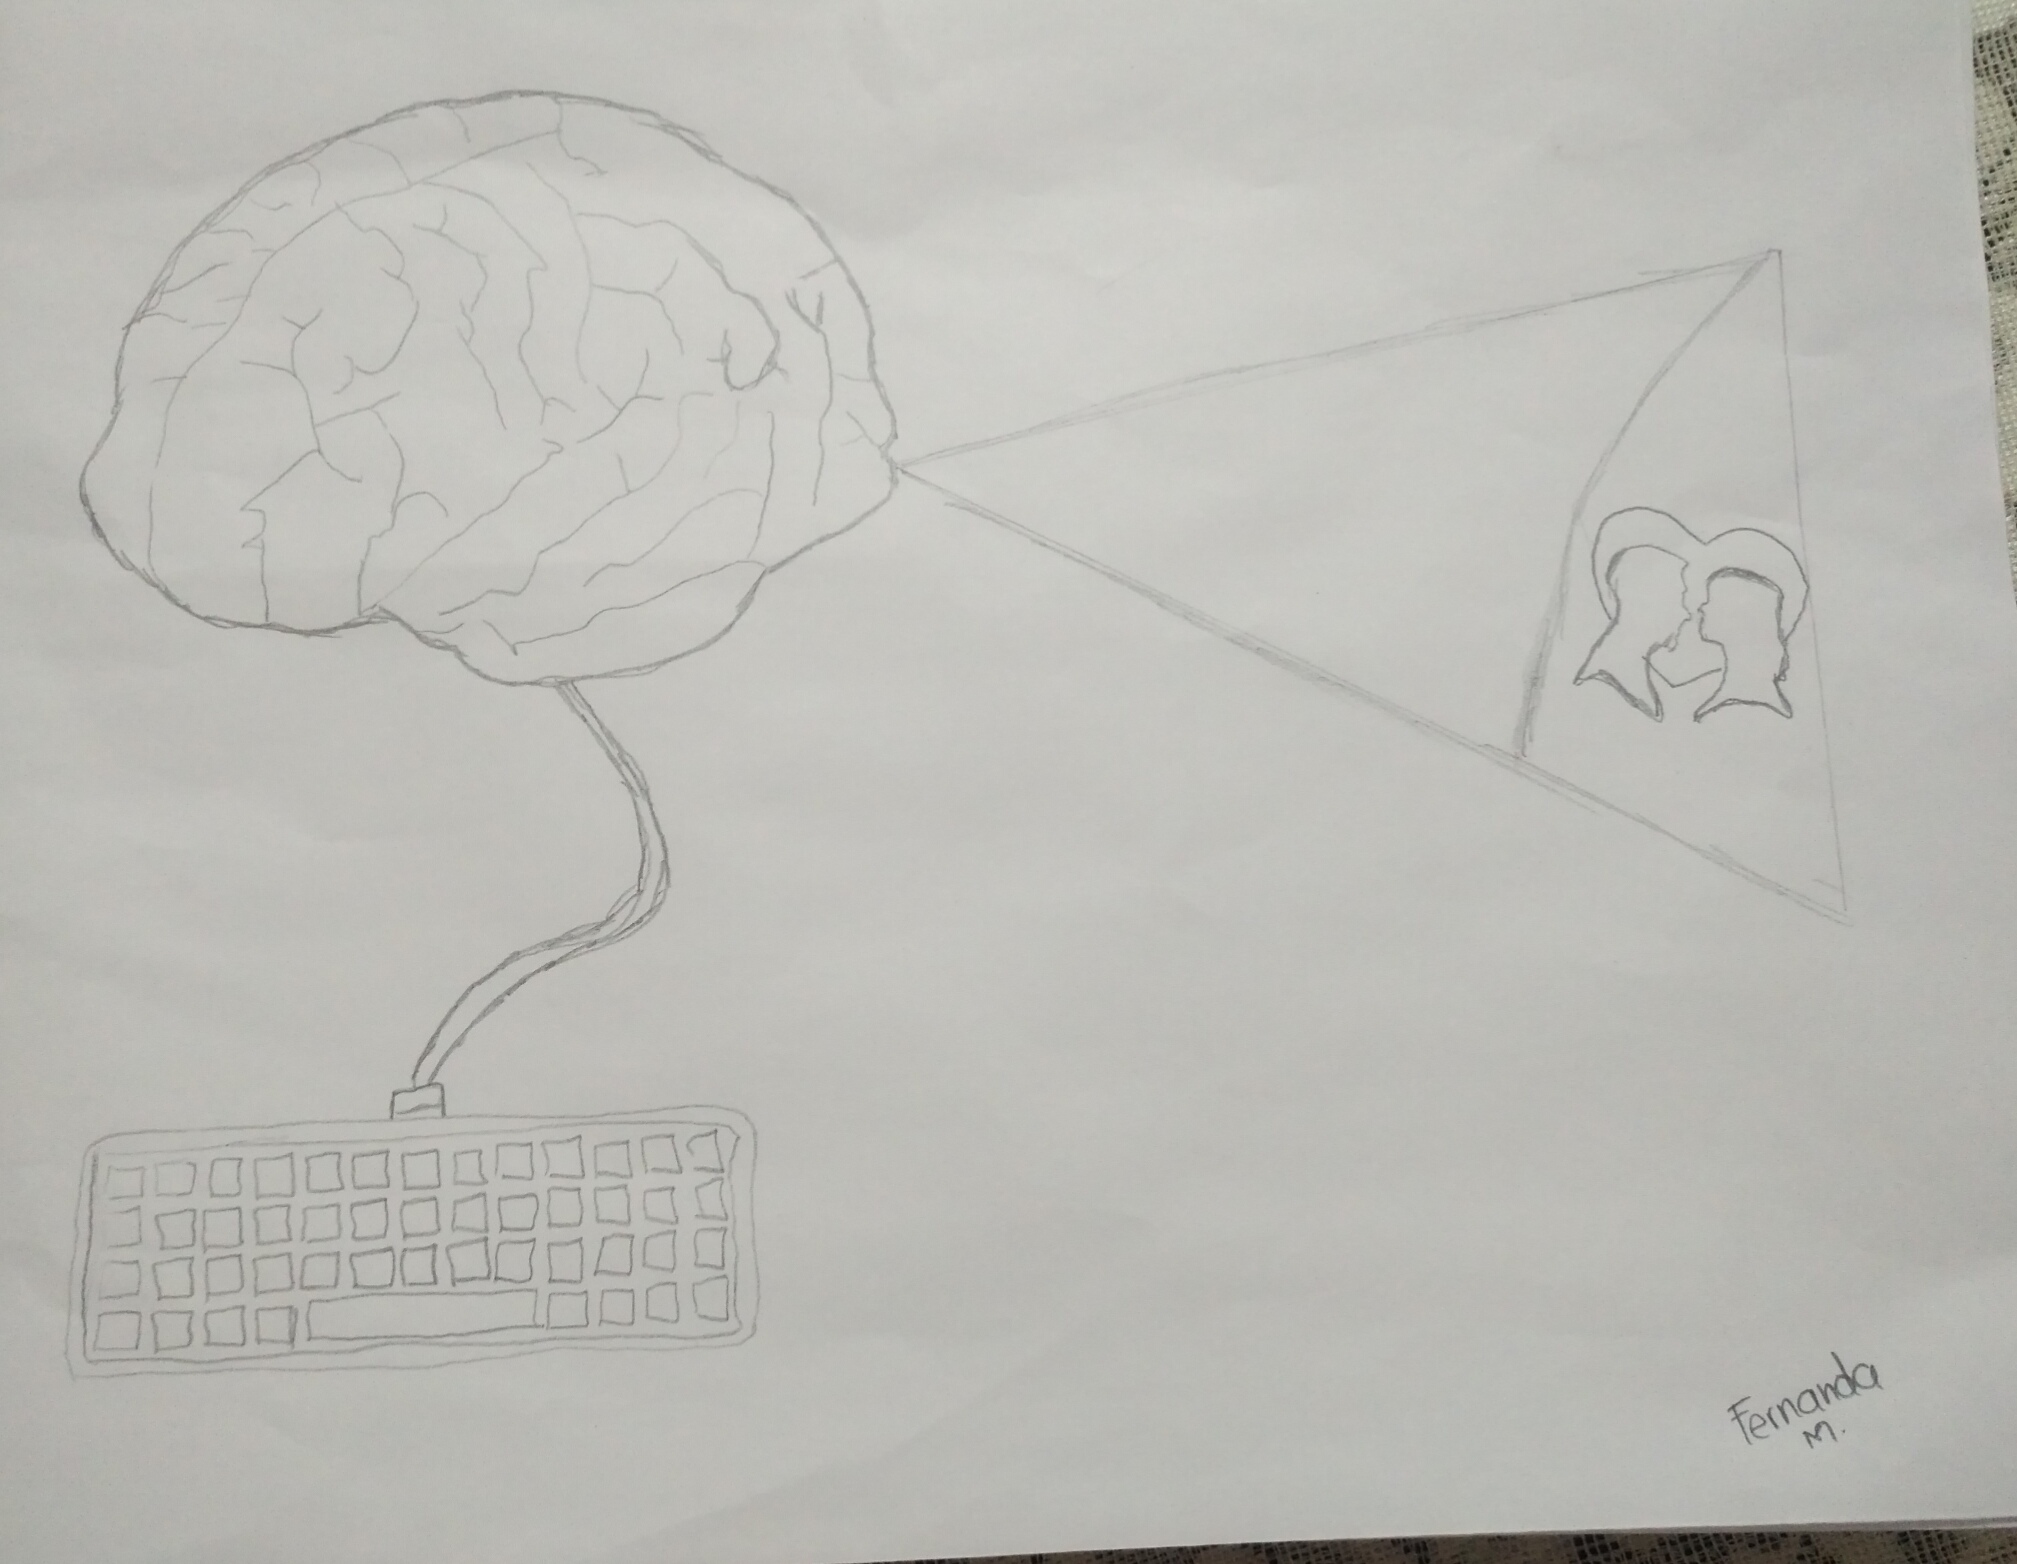 Fernanda
M.